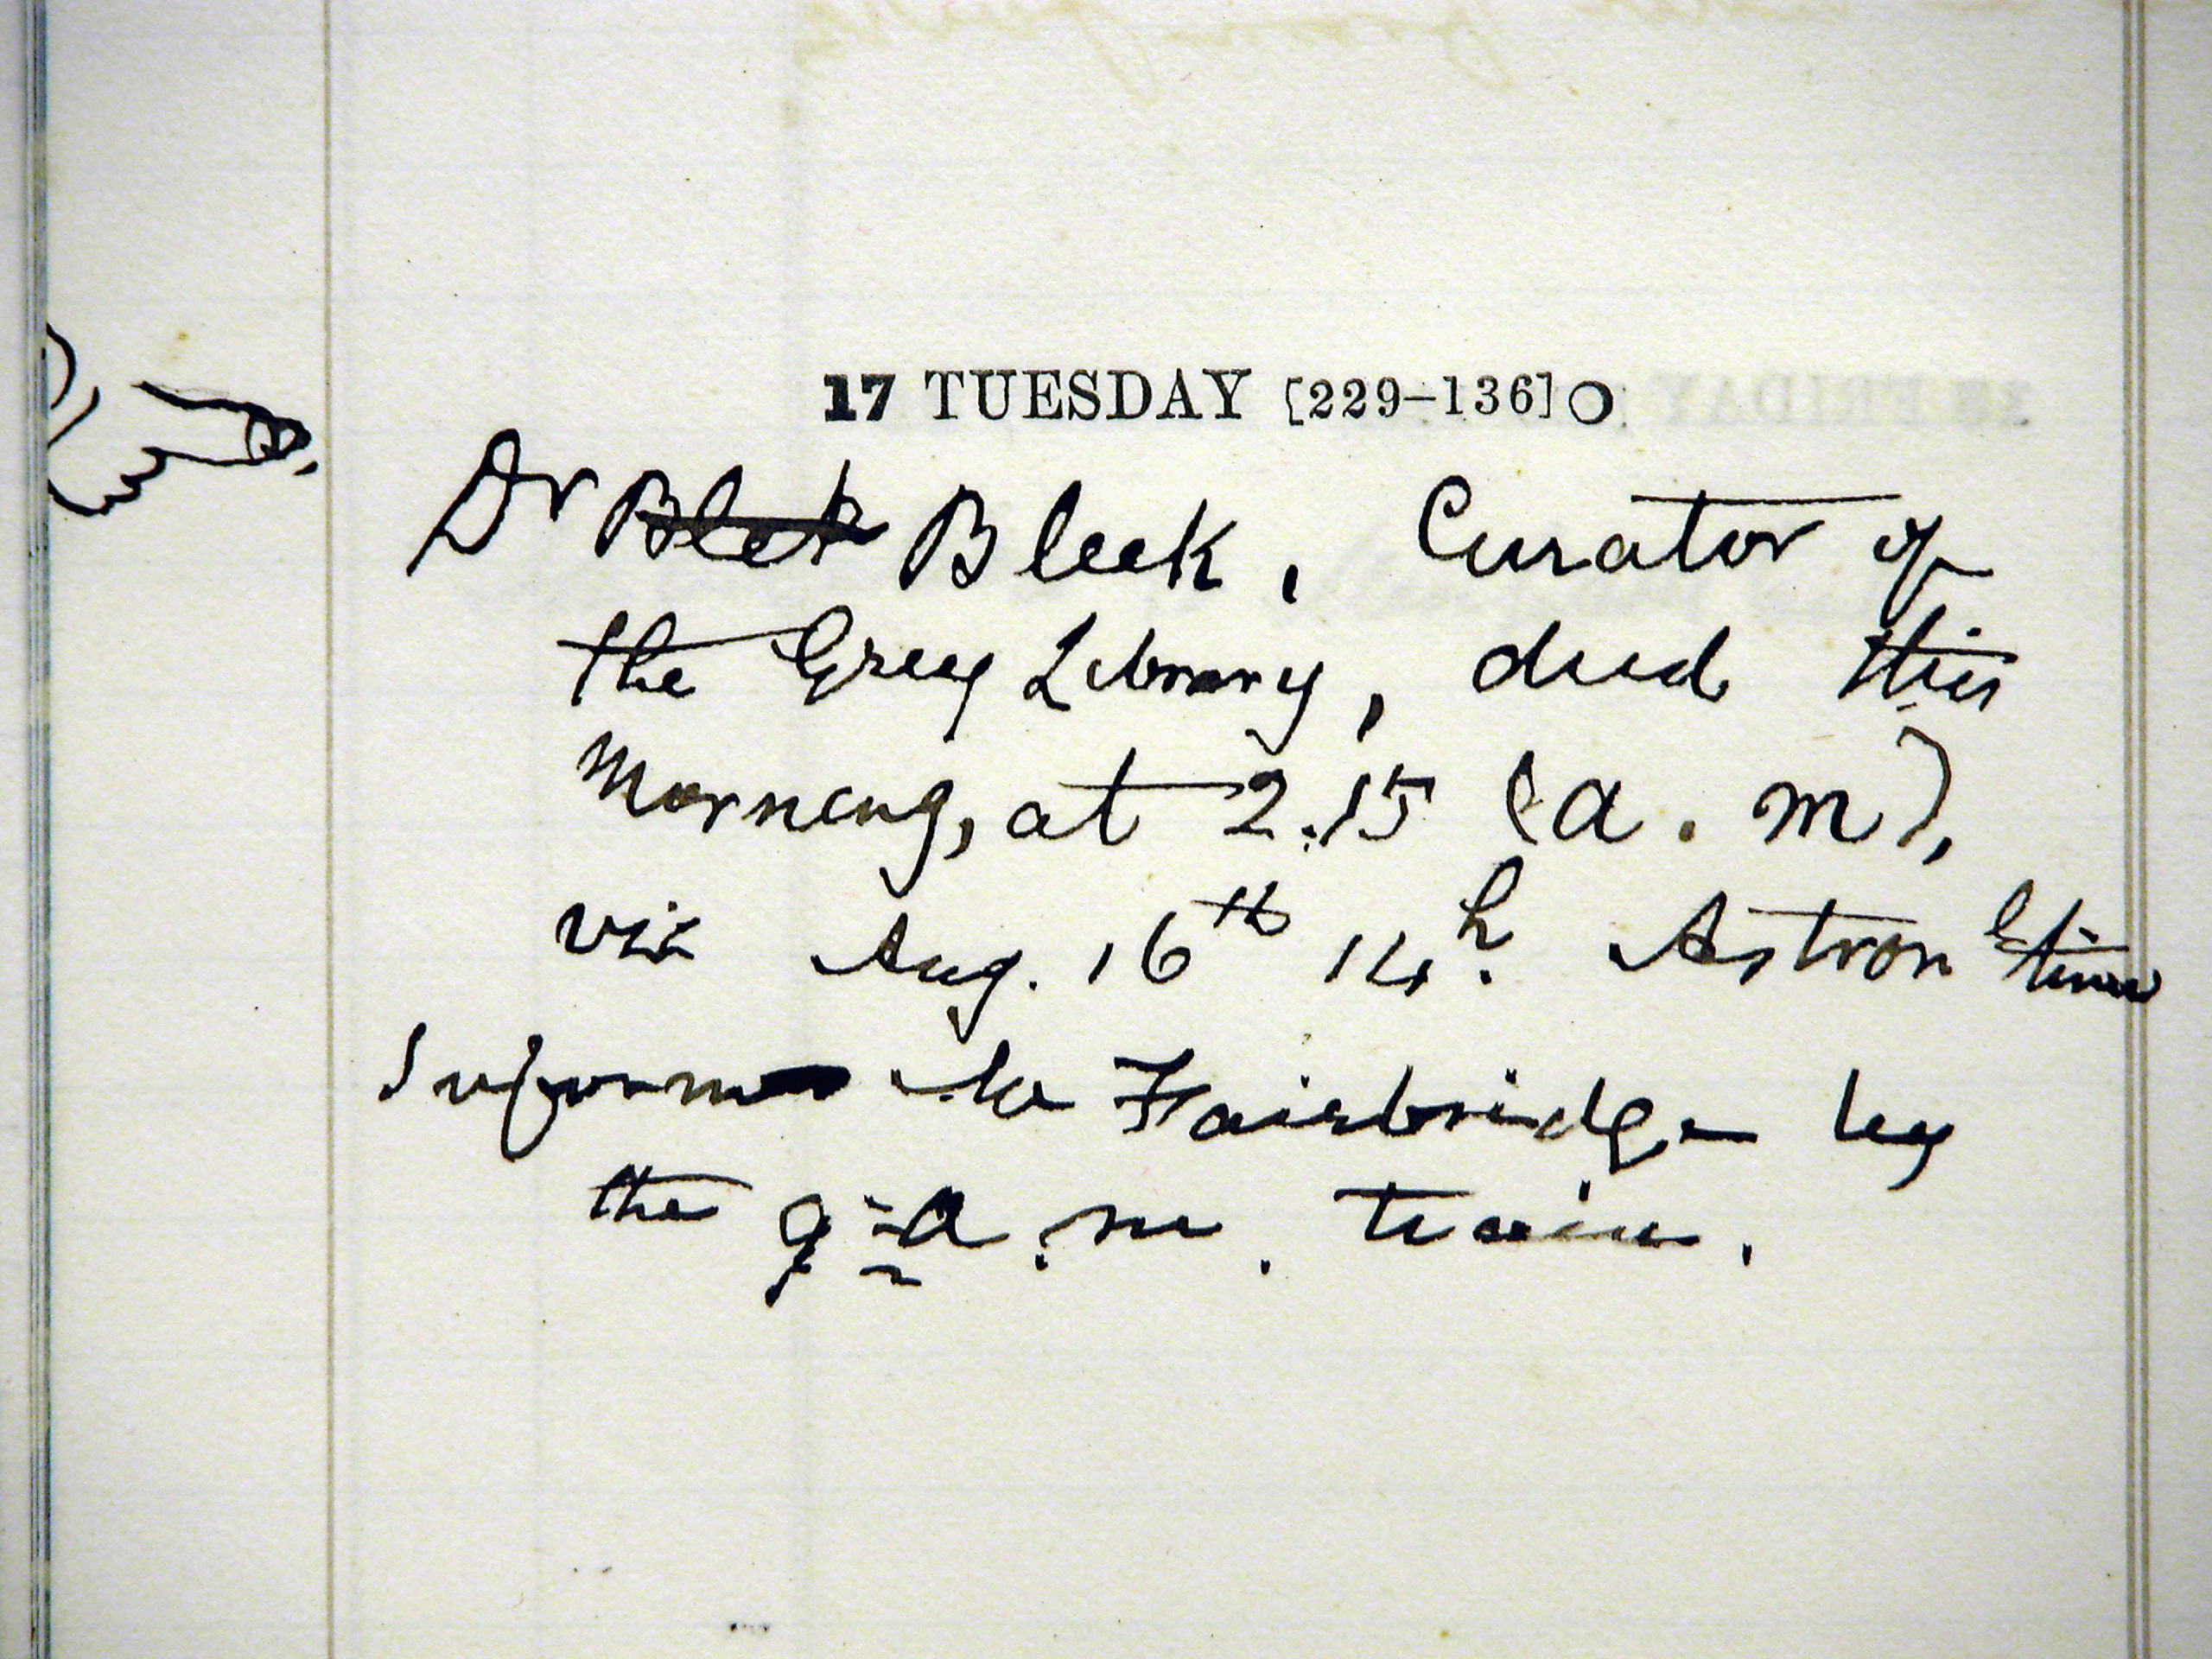 17 TUESDAY [229–136] O
Dr Blek Bleek, Curator of
the Grey Library, died this
Morning, at 2.15 (a.m),
viz Aug. 16th 14h. Astronl time
Inform Mr Fairbridge by
the 9 a.m. train.